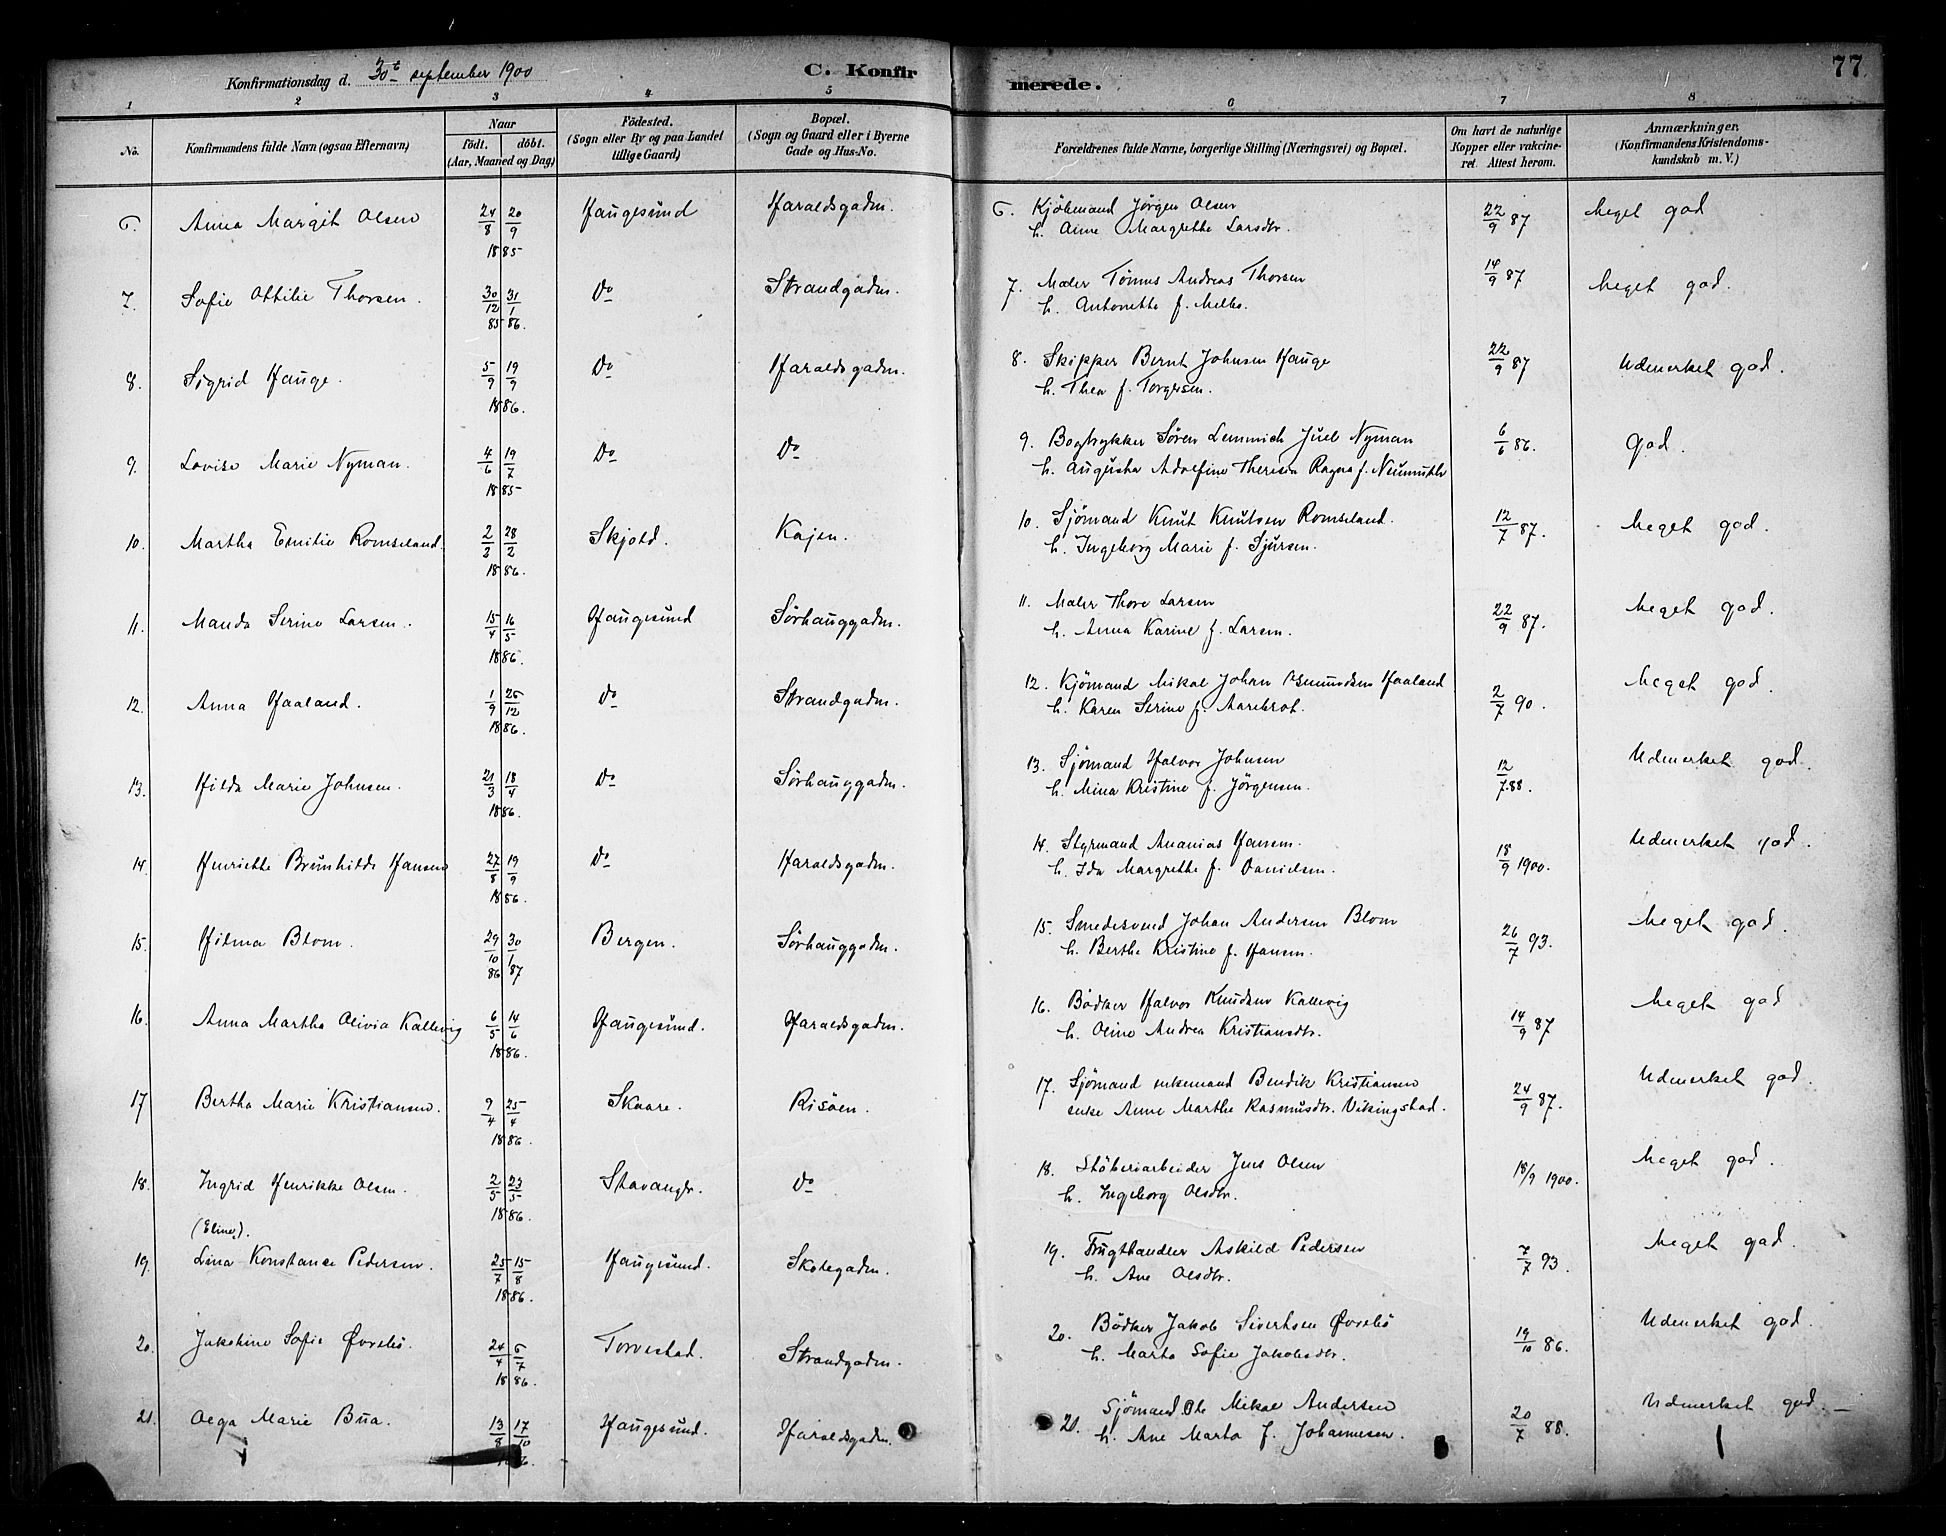 Konfirmationsdag d. 30te september 1900
C. Konfirmerede.
77
1 2 3 4 5 6 7 8
No.
Konfirmandens fulde Navn (ogsaa Efternavn)
Naar
födt. döbt.
(Aar, Maaned og Dag)
Födested.
(Sogn eller By og paa Landet
tillige Gaard)
Bopæl.
(Sogn og Gaard eller i Byerne
Gade og Hus-No.
Forældrenes fulde Navne, borgerlige Stilling (Næringsvei) og Bopæl.
Om havt de naturlige
Kopper eller vakcine-
ret. Attest herom.
Anmærkninger.
(Konfirmandens Kristendoms-
kundskab m. V.)
6. Anna Margit Olsen 24/8 20/9 1885 Haugesund Haraldsgaden.
6. Kjöbmand Jörgen Olsen
h. Anne Margrethe Larsdtr. 22/9 87 Meget god
7. Sofie Ottilie Thorsen. 30/12 85 31/1 86. Do Strandgaden.
7. Maler Tönnes Andreas Thorsen
h. Antonette f. Melbo. 14/9 87 Meget god.
8. Sigrid Hauge. 5/9 19/9 1886. Do Haraldsgaden.
8. Skipper Bernt Johnsen Hauge
h. Thea f. Torgersen. 22/9 87 Udmerket god.
9. Lovise Marie Nyman. 4/6 19/7 1885 Do Do
9. Bogtrykker Sören Lemmich Juel Nyman
h. Augusta Adolfine Theresia Ragna f. Neumuthr 6/6 86. God.
10. Martha Emilie Romseland. 2/2 28/2 1886. Skjold. Kajen.
10. Sjömand Knut Knutsen Romseland.
h. Ingeborg Marie f. Sjursen. 12/7 87. Meget god.
11. Manda Serine Larsen. 15/4 16/5 1886. Haugesund Sörhauggaden.
11. Maler Thore Larsen
h. Anna Karine f. Larsen. 22/9 87. Meget god.
12. Anna Haaland. 1/9 25/12 1886. Do Strandgaden.
12. Kjömand Mikal Johan Haaland
h. Karen Serine f. Aarebrot. 2/7 90. Meget god.
13. Hilda Marie Johnsen. 21/3 18/4 1886. Do Sörhauggaden.
13. Sjömand Halvor Johnsen
h. Mina Kristine f. Jörgensen. 12/7.88. Udmerket god.
14. Henriette Brünhilde Hansen 27/8 19/9 1886. Do Haraldsgaden.
14. Styrmand Ananias Hansen.
h. Ida Margrethe f. Danielsen. 18/9 1900. Udmerket god.
15. Hilma Blom. 29/10 86 30/1 87 Bergen. Sörhauggaden.
15. Smedesvend Johan Andersen Blom
h. Berthe Kristine f. Hansen. 26/7 93. Meget god.
16. Anna Martha Olivia Kallevig 6/5 14/6 1886. Haugesund. Haraldsgaden.
16. Bödker Halvor Knudsen Kallevig
h. Oline Andrea Kristiansdtr. 14/9 87 Meget god
17 Bertha Marie Kristiansen. 9/4 25/4 1886. Skaare. Risöen.
17. Sjömand enkemand Bendik Kristiansen
enke Anne Marthe Rasmusdtr. Vikingstad. 24/9 87. Udmerket god.
18. Ingrid Henrikke Olsen. 2/5 23/5 1886. Stavanger. Do
18. Stöberiarbeider Jens Olsen
h. Ingeborg Olsdtr. 18/9 1900. Meget god.
(Eline).
19. Lina Konstance Pedersen. 25/7 15/8 1886. Haugesund. Skolegaden.
19. Frugthandler Askild Pedersen
h. Ane Olsdtr. 7/7 93. Meget god.
20. Jakobine Sofie Øvrebö. 24/4 6/7 1886. Torvestad. Strandgaden.
20. Bödker Jakob Sivertsen Øvrebö
h. Marta Sofie Jakobsdtr. 19/10 86. Udmerket god.
21. Olga Marie Bua. 13/8 17/10 Haugesund. Haraldsgaden.
21. Sjömand Ole Mikal Andersen
h. Ane Marta f. Johannesen. 20/7 88. Udmerket god.